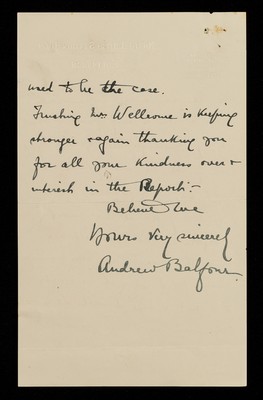 used to be the case.
Trusting Mr. Wellcome is keeping
stronger & again thanking you
for all your kindness over &
interest in the Report:-
Believe me
Yours very sincerely
Andrew Balfour.